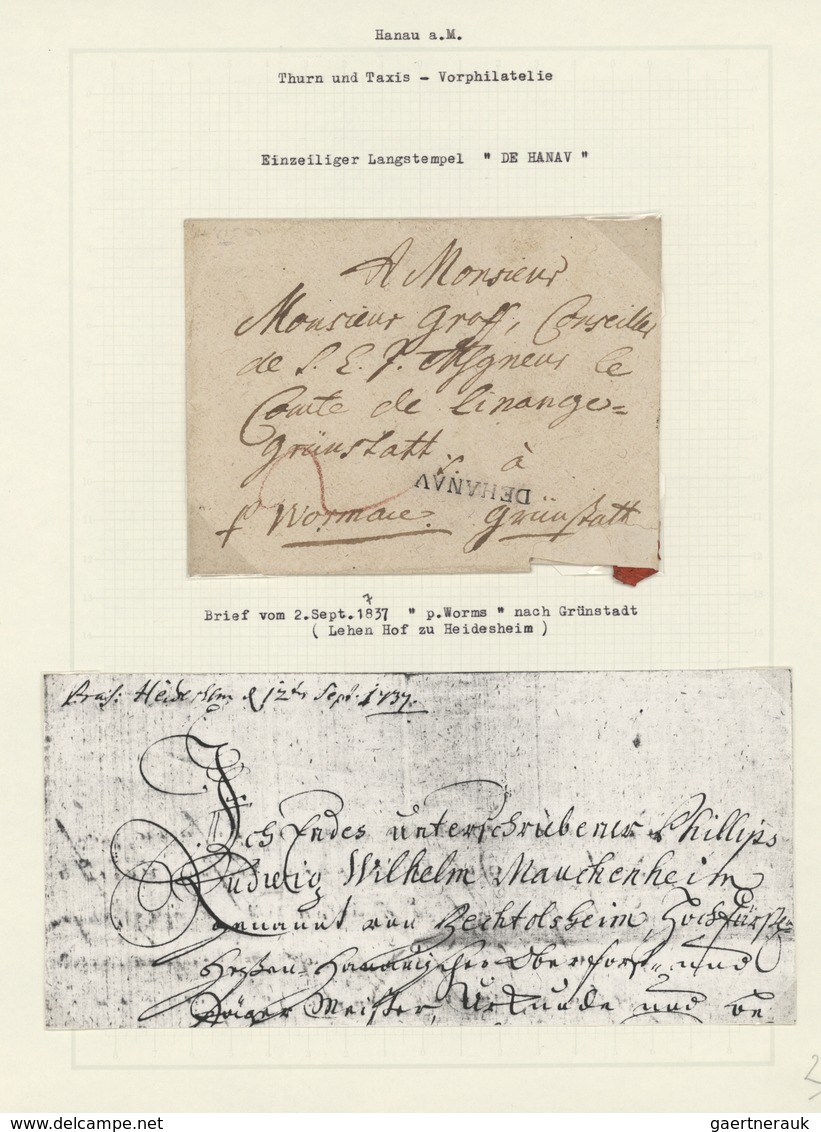 Hanau a.M.
Thurn und Taxis - Vorphilatelie
Einzeiliger Langstempel " DE HANAV "
A Monsieur
Monsieur Groff, Conseiller
de S. E. Msgneur le
Comte de Linange=
Grünstatt. à
DE HANAV
p Wormace. Grünstatt
7
Brief vom 2.Sept.1837 " p.Worms " nach Grünstadt
( Lehen Hof zu Heidesheim )
Heidesheim d 12ten Sept. 1737.
Ich Endes unterschriebener Phillips
Ludwig Wilhelm Mauchenheim
genannt von Bechtolsheim, Hochfürstl.
Heßen-Hanauischer Oberforst- und
Jäger Meister, Urkunde und be-
www.delcampe.net
gaertnerauk